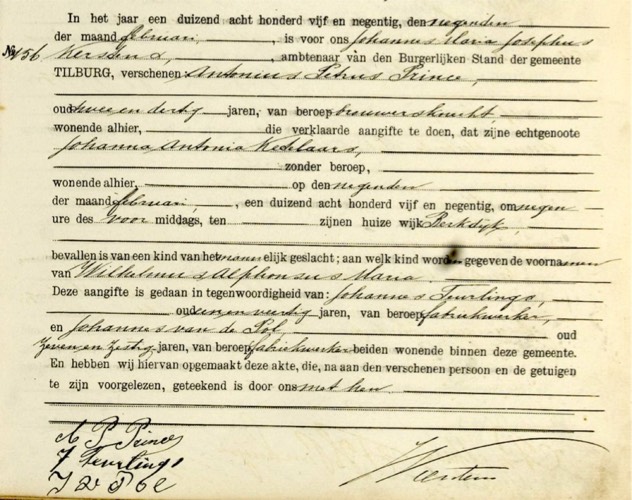 In het jaar een duizend acht honderd vijf en negentig, den negenden
der maand februari, is voor ons Johannes Maria Josephus
No 156 Kerstens, ambtenaar van den Burgerlijken Stand der gemeente
TILBURG, verschenen Antonius Petrus Prince,
oud twee en dertig jaren, van beroep brouwersknecht,
wonende alhier, die verklaarde aangifte te doen, dat zijne echtgenoote
Johanna Antonia Ketelaars,
zonder beroep,
wonende alhier, op den negenden
der maand februari, een duizend acht honderd vijf en negentig, om negen
ure des voor middags, ten zijnen huize wijk Berkdijk,
bevallen is van een kind van het mannelijk geslacht; aan welk kind worden gegeven de voornamen
van Wilhelmus Alphonsus Maria
Deze aangifte is gedaan in tegenwoordigheid van: Johannes Teurlings,
oud een en veertig jaren, van beroep fabriekwerker,
en Johannes van de Pol, oud
zeven en zestig jaren, van beroep fabriekwerker beiden wonende binnen deze gemeente.
En hebben wij hiervan opgemaakt deze akte, die, na aan den verschenen persoon en de getuigen
te zijn voorgelezen, geteekend is door ons met hen.
A P Prince
J Teurlings
J v d Pol
Kerstens